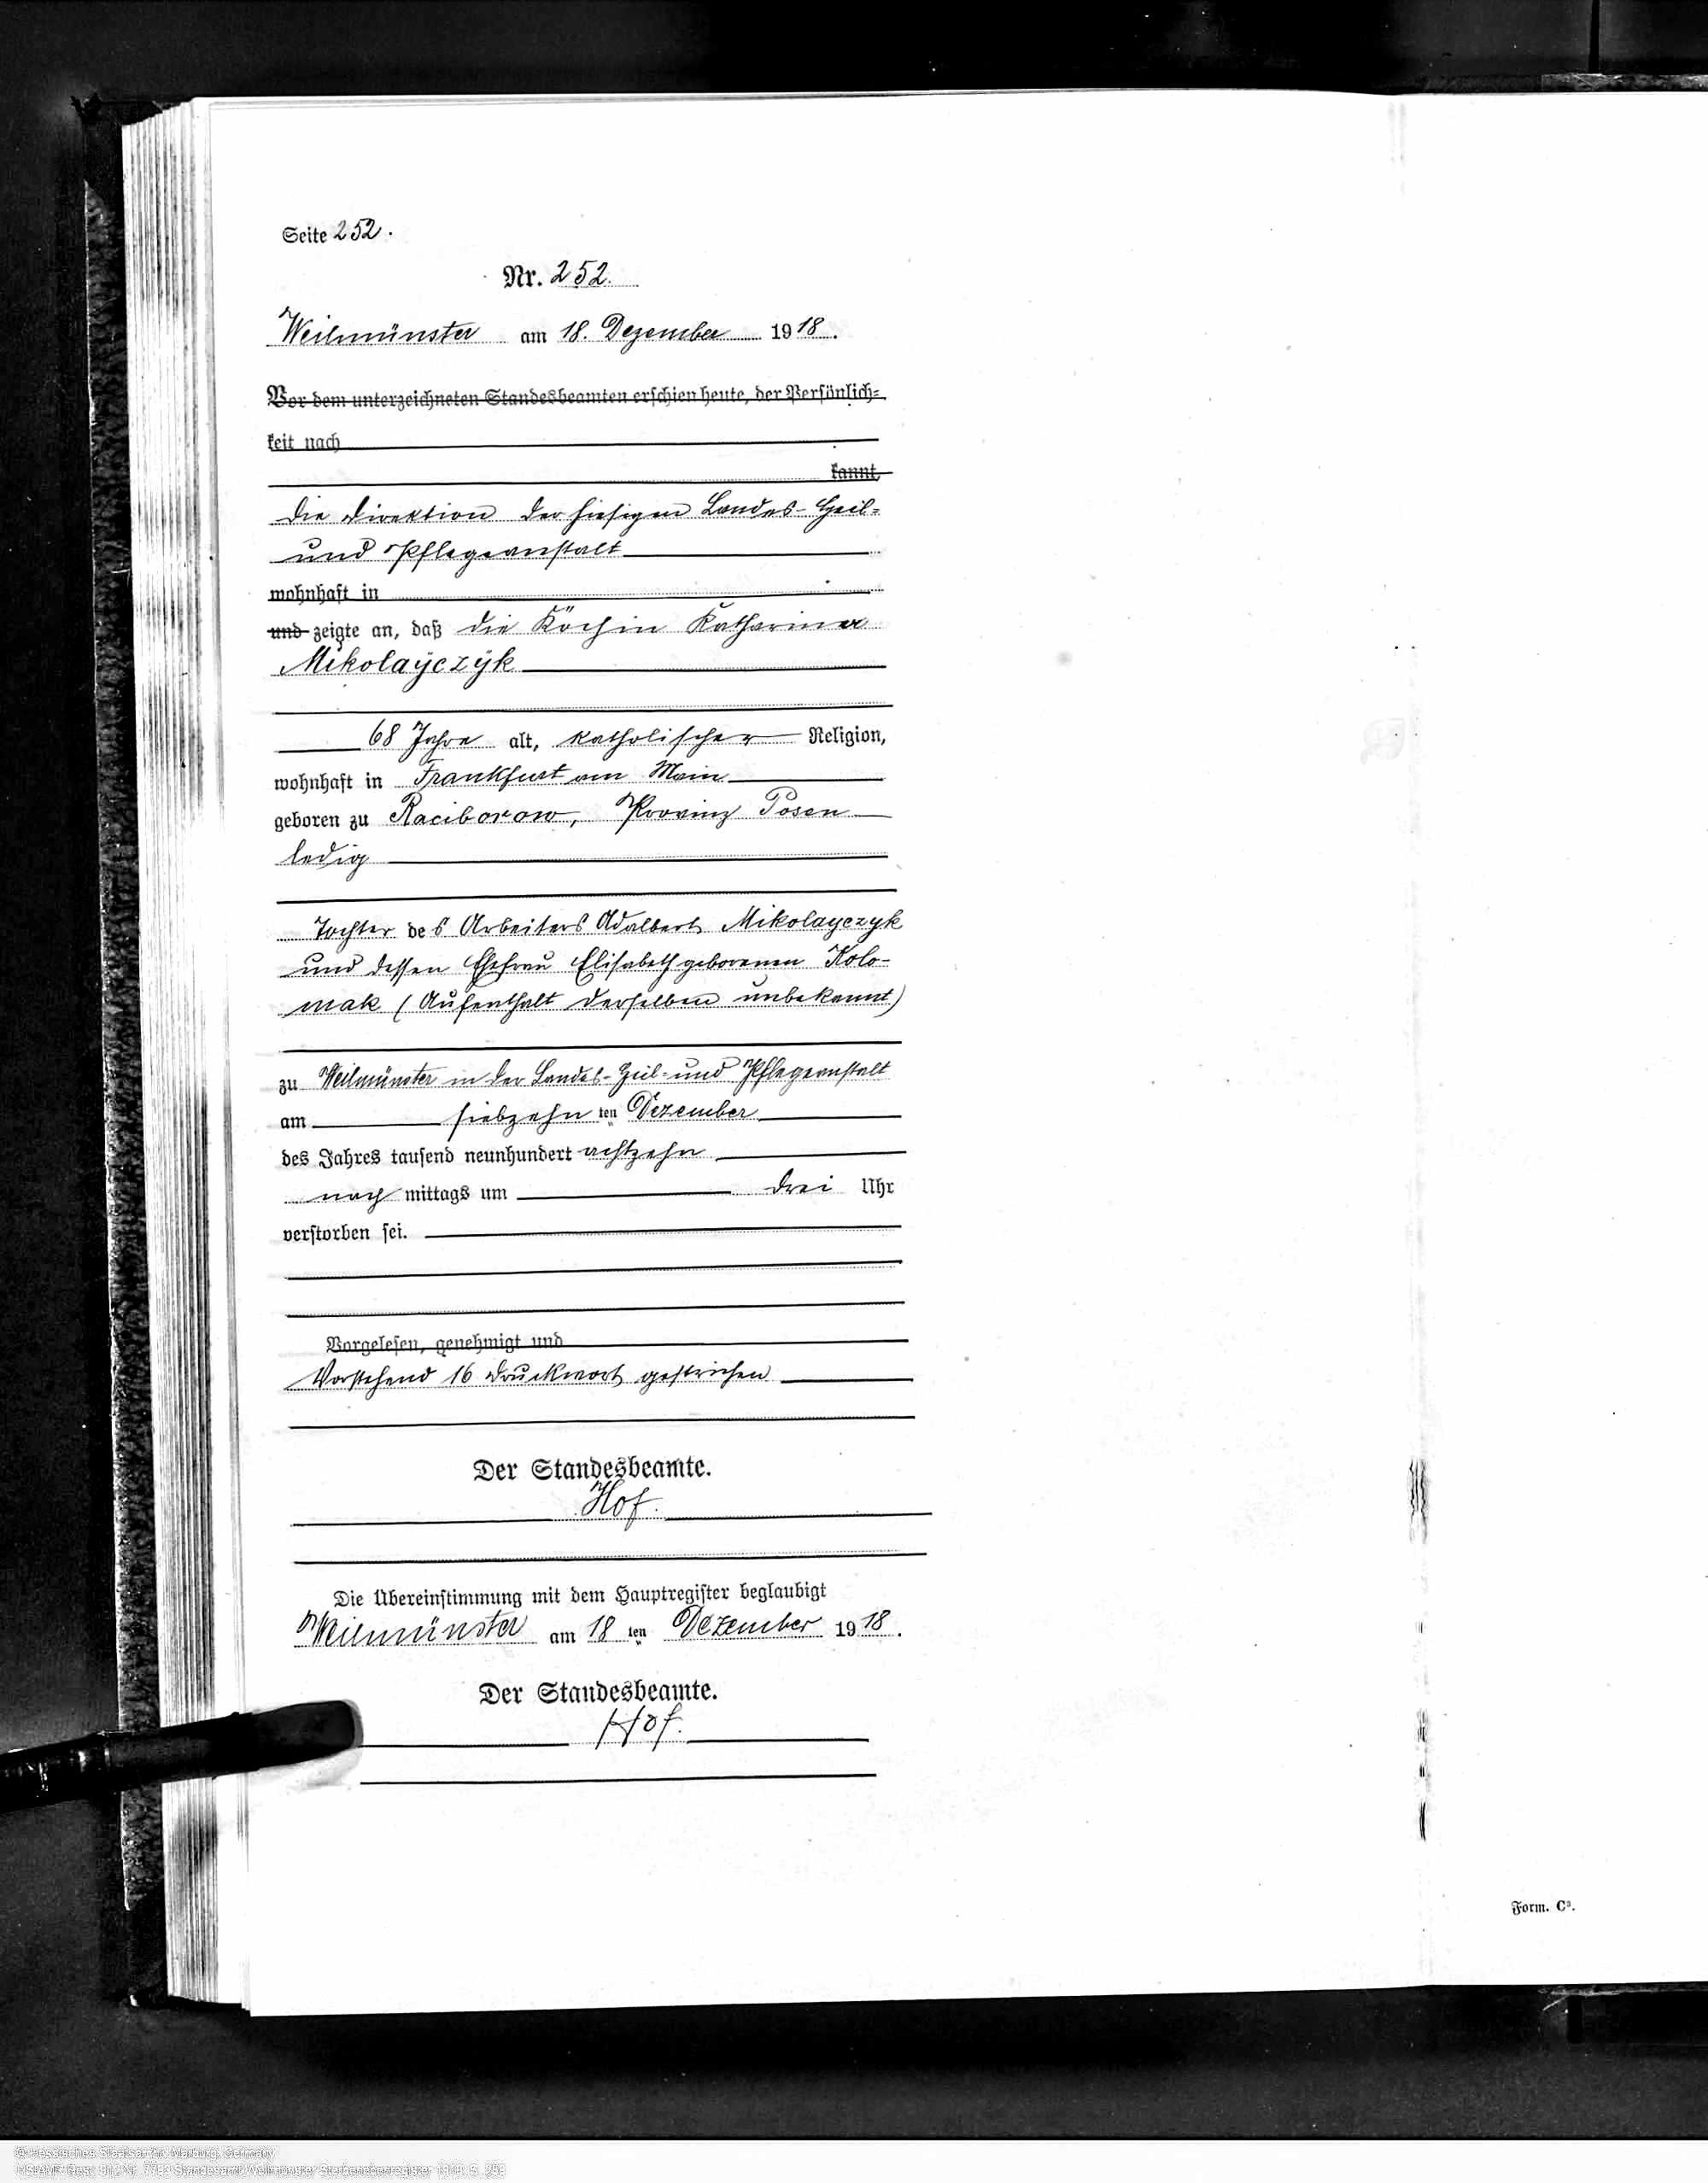 Seite 252.
Nr. 252.
Weilmünster am 18. Dezember 1918.
Vor dem unterzeichneten Standesbeamten erschien heute, der Persönlich=
keit nach
kannt,
die Direktion der hiesigen Landes-Heil=
und Pflegeanstalt
wohnhaft in
und zeigte an, daß die Köchin Katharina
Mikolaÿczÿk
68 Jahre alt, katholischer Religion,
wohnhaft in Frankfurt am Main
geboren zu Raciborow, Provinz Posen
ledig
Tochter des Arbeiters Adalbert Mikolayczyk
und dessen Ehefrau Elisabeth geborenen Kolo-
mak (Aufenthalt derselben unbekannt)
zu Weilmünster in der Landes-Heil- und Pflegeanstalt
am siebzehn ten Dezember
des Jahres tausend neunhundert achtzehn
nach mittags um drei Uhr
verstorben sei.
Vorgelesen, genehmigt und
Vorstehend 16 Druckwort gestrichen
Der Standesbeamte.
Hof.
Die Übereinstimmung mit dem Hauptregister beglaubigt
Weilmünster am 18 ten Dezember 1918.
Der Standesbeamte.
Hof.
Form. C³.